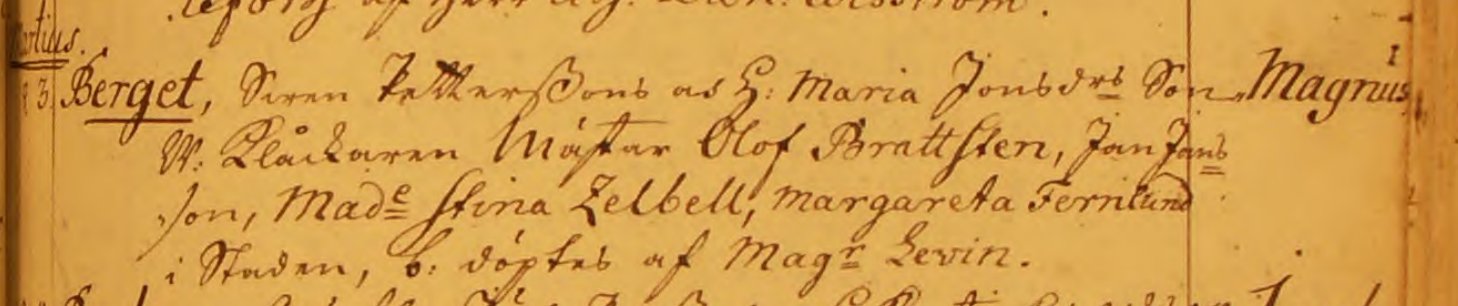 af Herr
Martius.
3. Berget, Sven Pettersßons ac H: Maria Jonsdrs Son Magnus 1
W: Klåckaren Mästar Olof Brattsten, Jan Jans
son, Made Stina Zelbell, Margareta Fernlund
i Staden, b: döptes af Magr Levin.